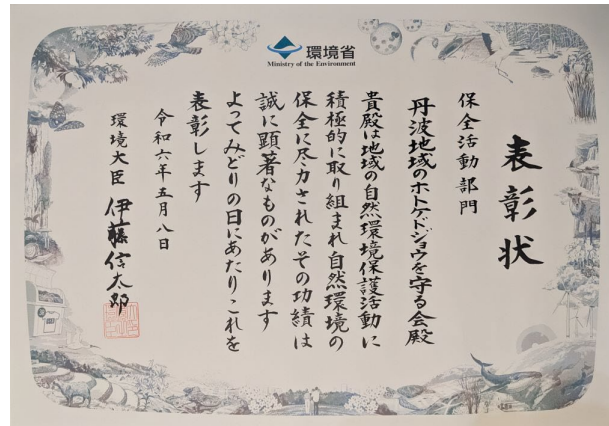 環境省
Ministry of the Environment
表彰状
保全活動部門
丹波地域のホトケドジョウを守る会殿
貴殿は地域の自然環境保護活動に
積極的に取り組まれ自然環境の
保全に尽力されたその功績は
誠に顕著なものがあります
よってみどりの日にあたりこれを
表彰します
令和六年五月八日
環境大臣 伊藤信太郎